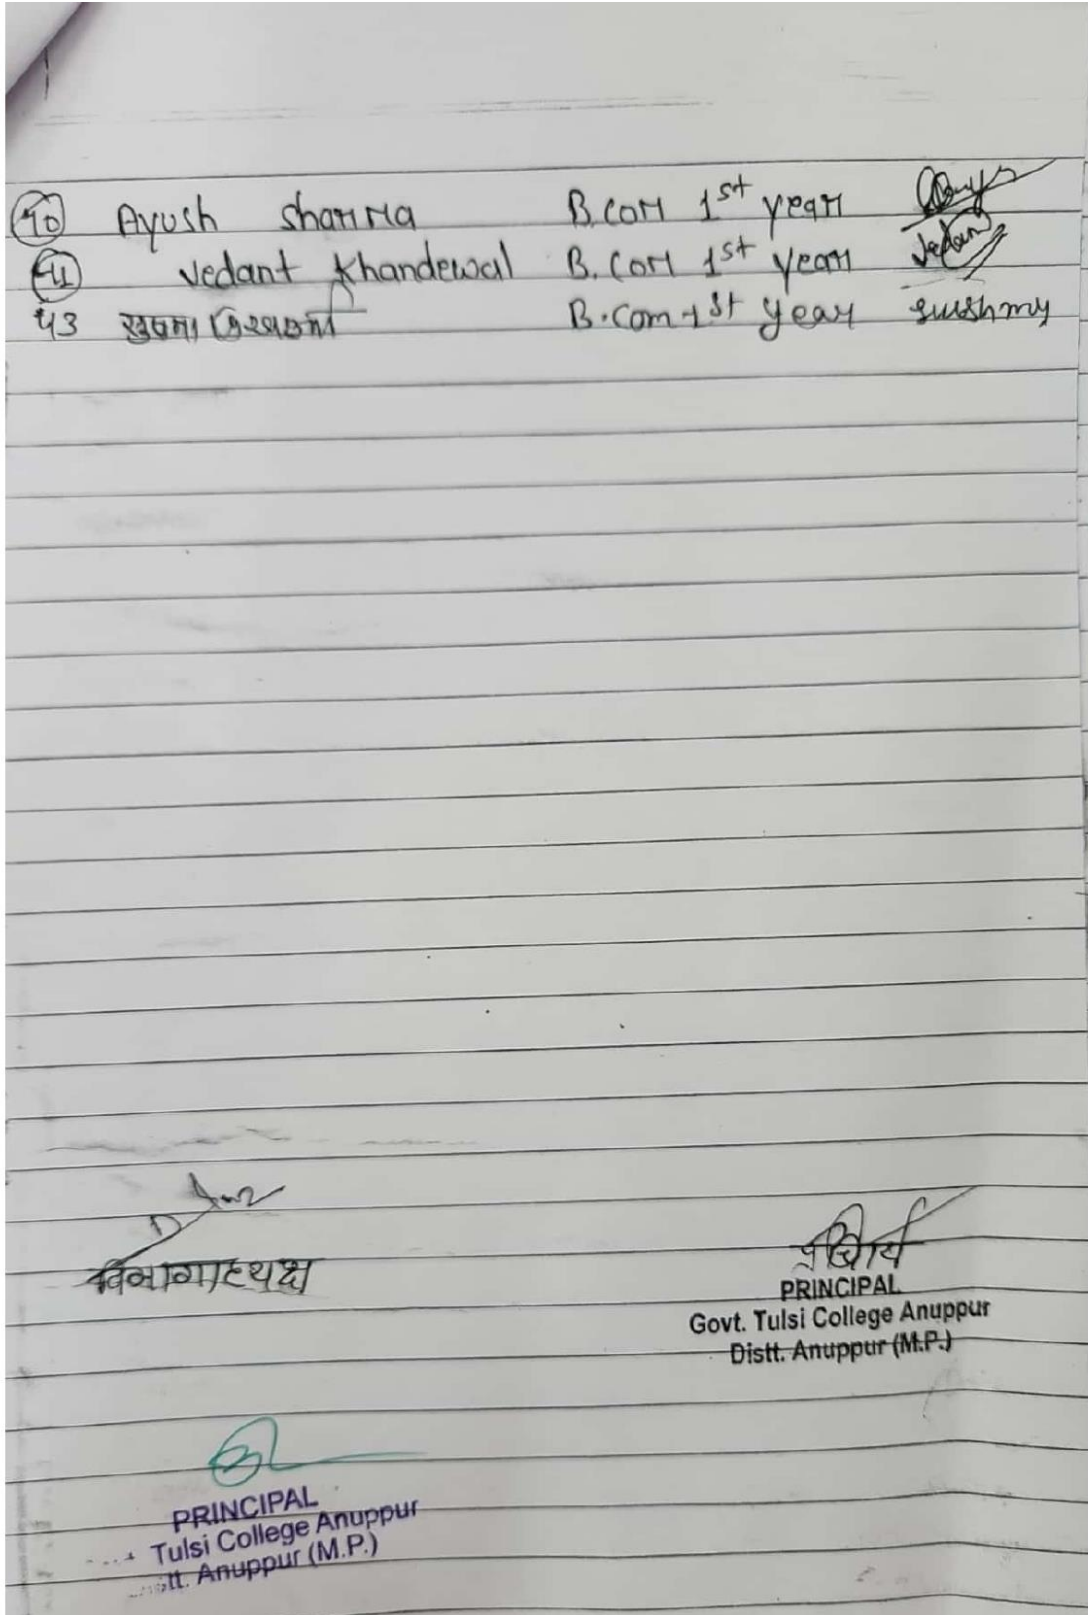 40 Ayush sharma B.com 1st year
41 Vedant Khandewal B.com 1st year Vedant
43 सुषमा B.com 1st year sushmy
विभागाध्यक्ष
प्राचार्य
PRINCIPAL
Govt. Tulsi College Anuppur
Distt. Anuppur (M.P.)
PRINCIPAL
Tulsi College Anuppur
tt. Anuppur (M.P.)